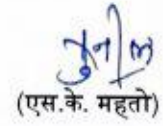 (एस.के. महतो)